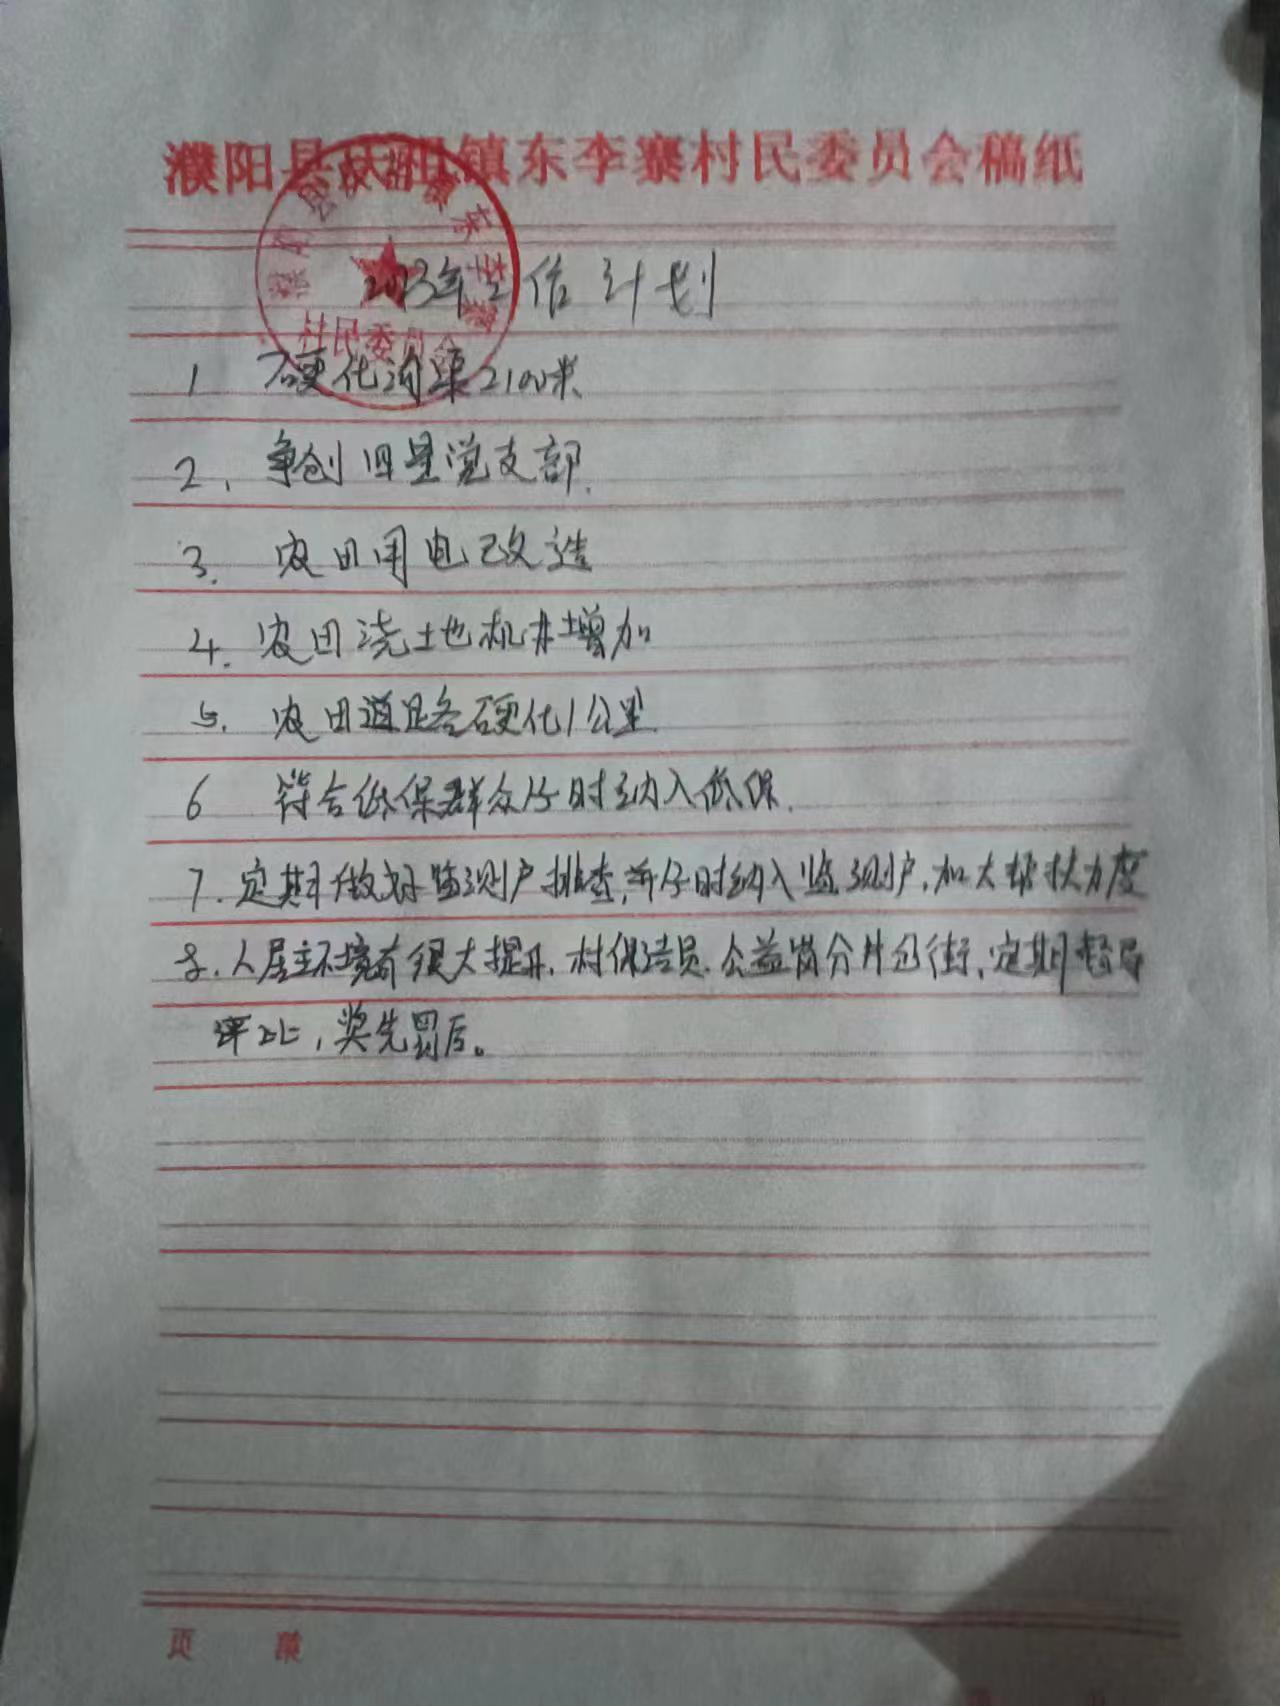 濮阳县庆祖镇东李寨村民委员会稿纸
濮阳县庆祖镇东李寨
村民委员会
2023年工作计划
1 硬化沟渠2100米
2. 争创四星党支部.
3. 农田用电改造
4. 农田浇土地机井增加
5. 农田道路硬化1公里.
6 符合低保群众及时纳入低保.
7. 定期做好监测户排查,并及时纳入监测户.加大帮扶力度
8. 人居环境有很大提升.村保洁员.公益岗分片包街、定期督导
评比,奖先罚后。
页 第